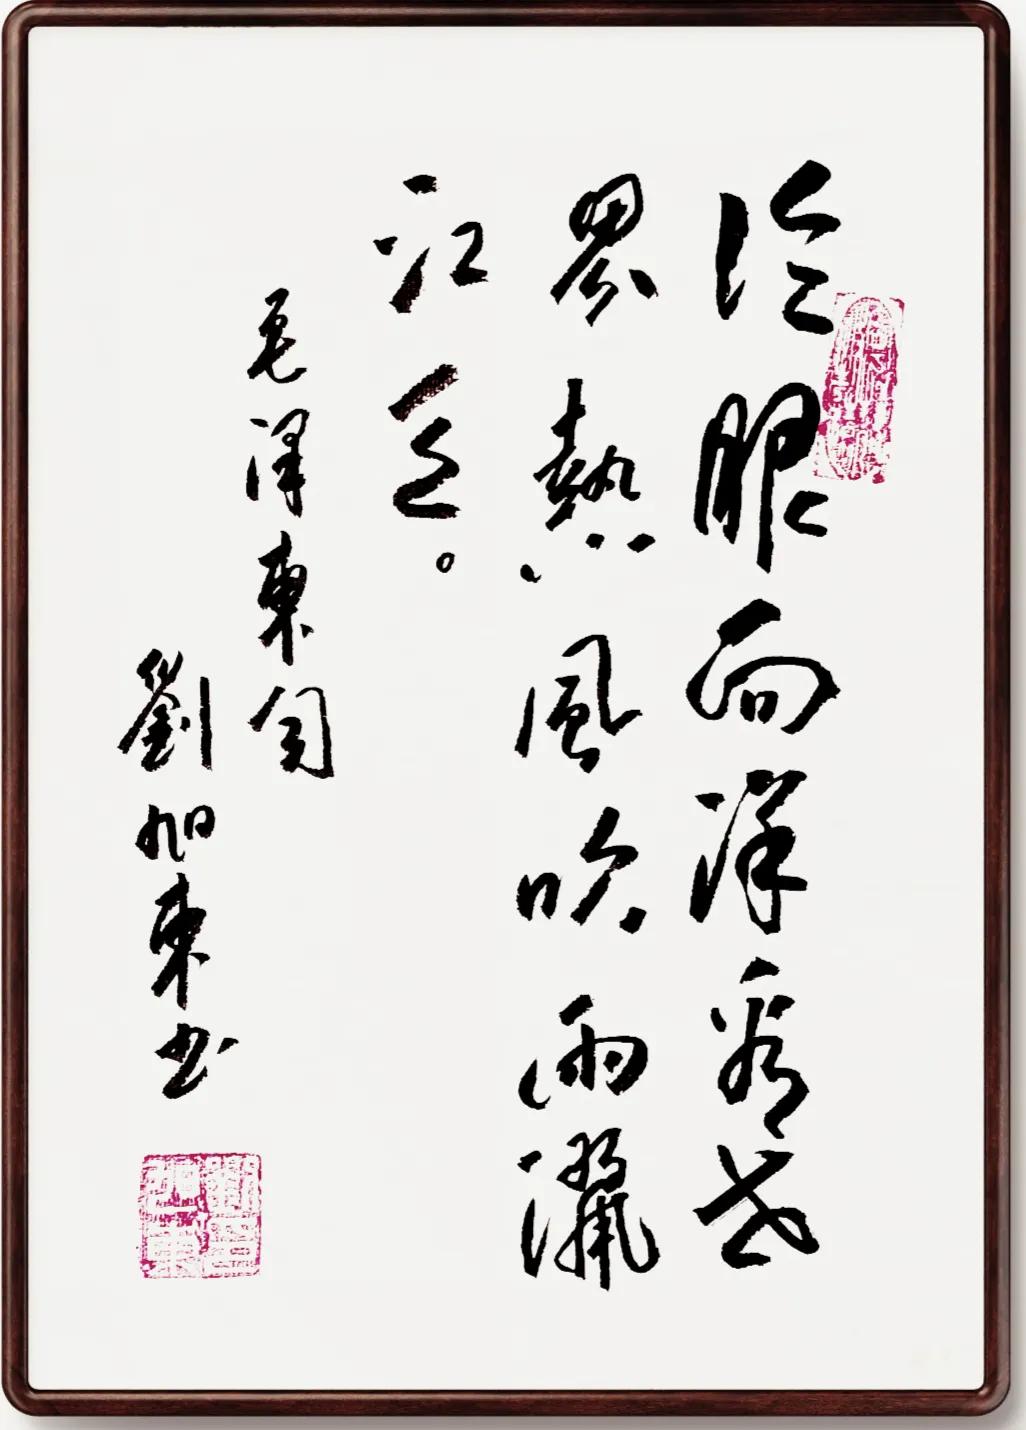 冷眼向洋看世
界熱風吹雨灑
江天。
毛澤東句
劉旭東书